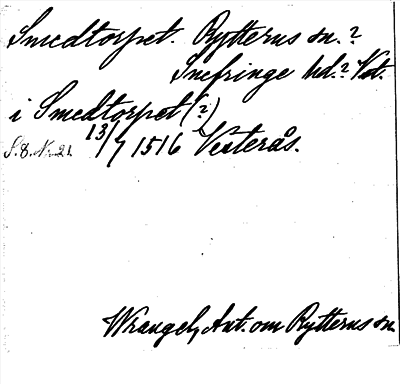 Smedtorpet. Rytterns sn.?
Snefringe hd.? Vst.
i Smedtorpet (?)
S. 8. N. 21. 13/7 1516 Vesterås.
Wrangel, Ant. om Rytterns sn.